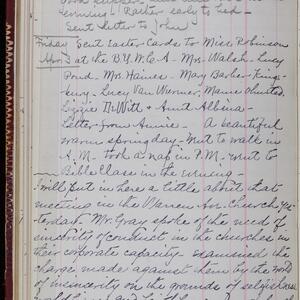 evening - Rather early to bed -
Sent letter to John
Friday Sent Easter Cards to Miss Robinson
at the B.Y.W.C.A - Mrs. Walsh - Lucy
Pond. Mrs. Haines - Mary Barber - Kings-
bury - Lucy Van Wormer, Mame Olmsted,
Lizzie DeWitt & Aunt Albina -
Letter from Annie - A beautiful
warm spring day - Went to walk in
A.M. Took a nap in P.M. - Went to
Bible Class in the evening -
I will put in here a little about that
meeting in the Warren Av. Church yes-
terday. Mr. Gray spoke of the need of
sincerity of conduct in the churches in
their corporate capacity - examined the
charge made against them by the world
of insincerity on the grounds of selfishness